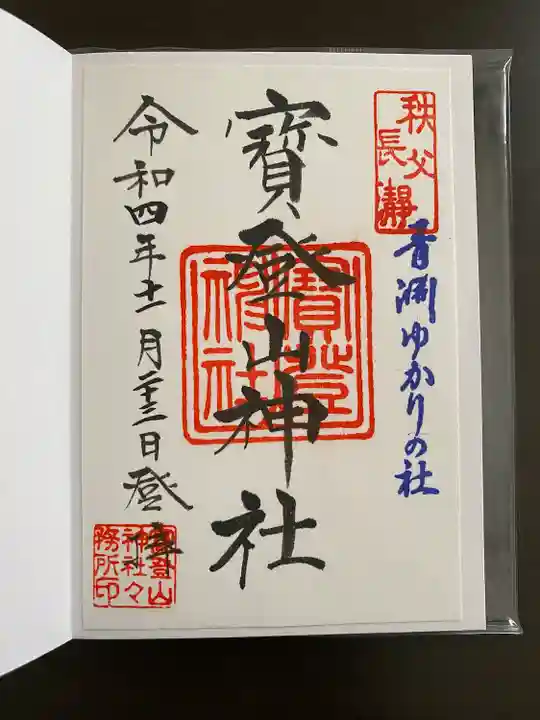 秩父
長瀞
青淵ゆかりの社
寳登山神社
寳登山
神社
令和四年十一月二十三日登拝
寳登山
神社々
務所印